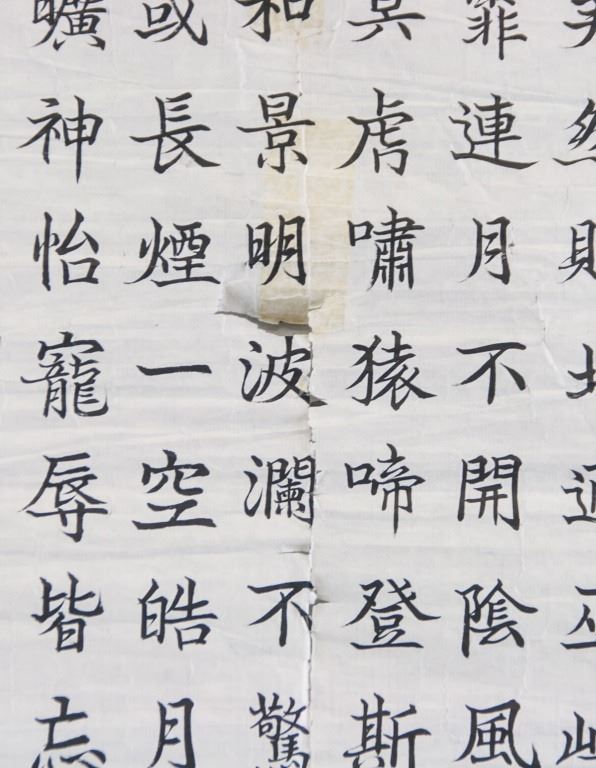 矣然則北通巫峽
霏連月不開陰風
冥虎嘯猿啼登斯
和景明波瀾不驚
或長煙一空皓月
曠神怡寵辱皆忘